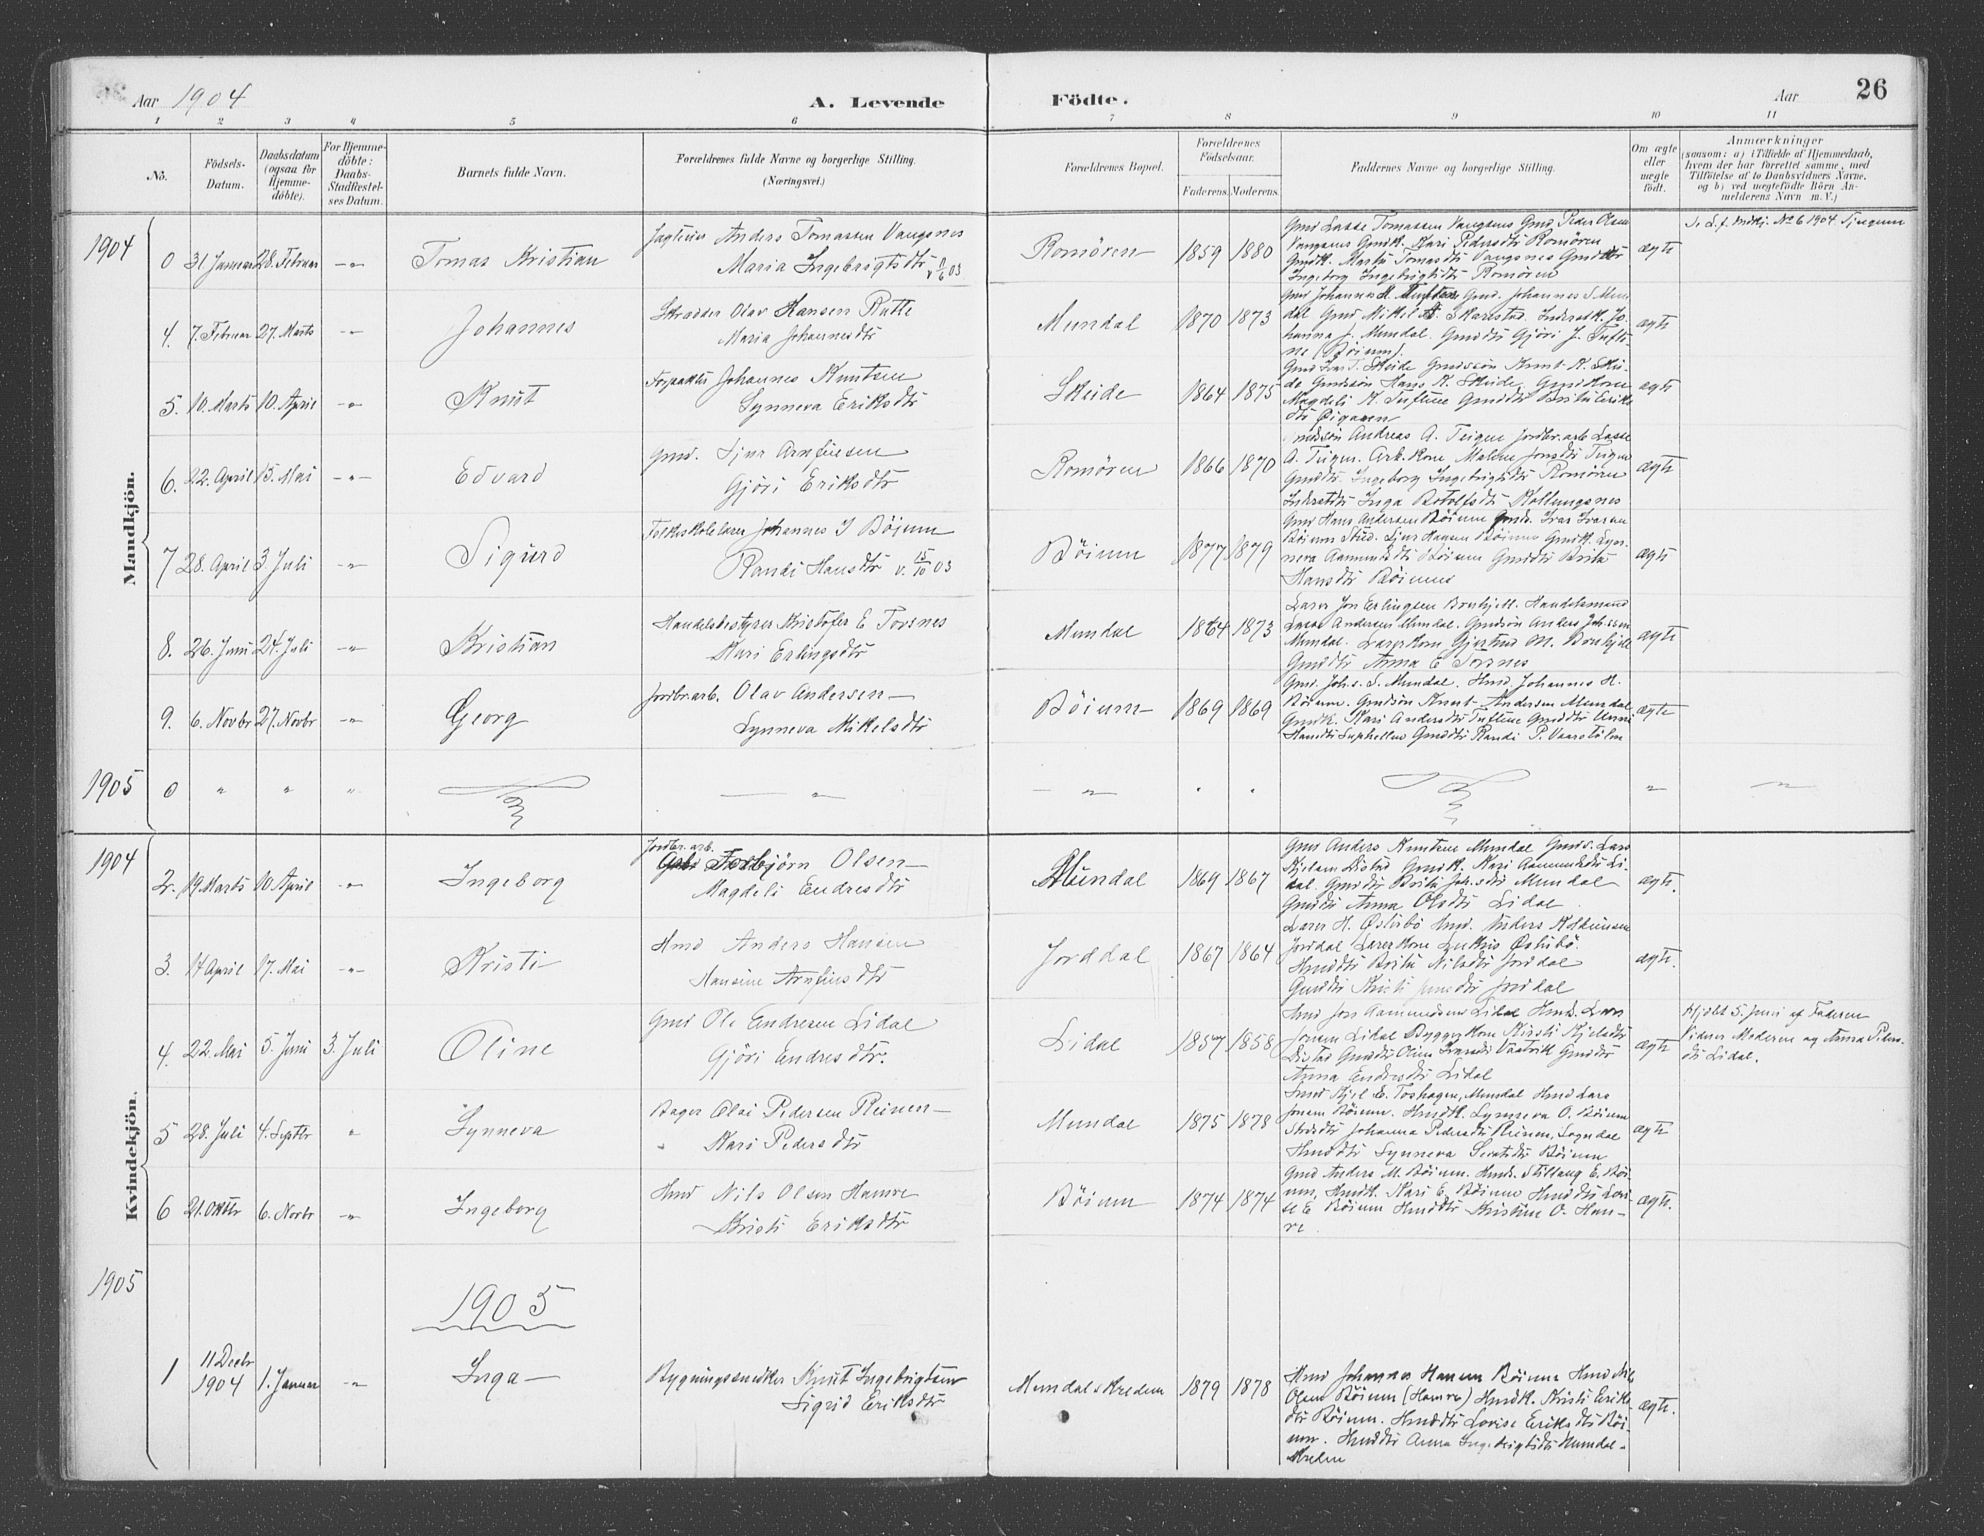 Aar 1904 A. Levende Födte. Aar 26
1 2 3 4 5 6 7 8 9 10 11
No.
Födsels-Datum.
Daabsdatum (ogsaa for Hjemme-döbte).
For Hjemme-döbte: Daabs-Stadfæstel-ses Datum.
Barnets fulde Navn.
Forældrenes fulde Navne og borgerlige Stilling.
(Næringsvei.)
Forældrenes Bopæl.
Forældrenes Födselsaar.
Faderens. Moderens.
Faddernes Navne og borgerlige Stilling.
Om ægte eller uægte født.
Anmærkninger
(saasom: a) i Tilfælde af Hjemmedaab,
hvem der har forrettet samme, med
Tilföielse af to Daabsvidners Navne.
og b) ved uægtefödte Börn An-
melderens Navn m. V.)
Mandkjön.
1904
0 31 Januar 28. Februar -"- Tomas Kristian
Anders Tomassen Vangsnes
Maria Ingebrigtsdtr
Romören 1859 1880
Gmd Lasse Tomassen Vangsnes Gmd Peder Olsen
Vangsnes Gmdk. Kari Pedersdtr Romören
Gmdk. Marta Tomasdtr Vangsnes Gmddtr
Ingeborg Ingebrigtsdtr Romören
ægte
No 6 1904
4. 7. Februar 27. Marts -"- Johannes
Skrædder Olav Hansen Rutle
Maria Johannesdtr
Mundal 1870 1873
Gmd Johannes Gmd. Johannes S Mun
dal Gmd Mikel Skarestad. Jo
hanna J. Mundal. Gmddtr Gjöri J. Tufte
ne (Böium).
ægte
5. 10. Marts 10. April -"- Knut
Forpakter Johannes Knutsen
Synneva Eriksdtr
Skeide 1864 1875
Gmd Ivar T. Skeide Gmdssön Knut K. Skei-
de Gmdssön Hans K. Skeide, Gmdkone
Magdeli K. Tuftene Gmddtr Brita Eriks
dtr
ægte
6. 22. April 15. Mai -"- Edvard
Gmd. Sjur Arnfinsen
Gjöri Eriksdtr
Romören 1866 1870
Andreas A. Teigen Jordbr.arb Lasse
A. Teigen. Arb. Kone Malene Jonsdtr Teigen
Gmddtr. Ingeborg Ingebrigtsdtr Romören
Inga
ægte
7 28. April 3. Juli -"- Sigurd
Folkeskolelærer Johannes I Böjum
Randi Hansdtr v. 15/10 03
Böium 1877 1879
Gmd Hans Andersen Böium Gmds. Ivar Ivarsen
Böium Stud. Sjur Hansen Böium Gmdk. Syn-
neva Aamundsdtr Böium Gmddtr Brita
Hansdtr Böium
ægte
8. 26. Juni 24. Juli -"- Kristian
Handelsbestyrer Kristofer E Torsnes
Kari Erlingsdtr
Mundal 1864 1873
Lærer Jon Erlingsen Handelsmand
Lasse Andersen Mundal. Gmdsön Anders Johssen
Mundal. Lærerkone Gjertrud M.
Gmddtr Anna E Torsnes
ægte
9. 6. Novbr 27. Novbr -"- Georg
Jordbr.arb. Olav Andersen
Synneva Mikelsdtr
Böium 1869 1869
Gmd. Johs. S. Mundal. Hmd. Johannes H.
Böium. Gmdsön Knut Andersen Mundal
Gmdk. Kari Andersdtr Tuftene Gmddtr
Hansdtr Suphellen Gmddtr Randi P.
ægte
1905 0 " " " -"- -"- " " " -"-
Kvindekjön.
1904
2. 19. Marts 10. April -"- Ingeborg
Jordbr. arb.
Torbjörn Olsen
Magdeli Endresdtr
Mundal 1869 1867
Gmd Anders Knutsen Mundal Gmds. Lars
Kjelsen Distad Gmdk. Kari Aamundsdtr Li-
dal. Gmddtr Brita Johsdtr Mundal
Gmddtr Anna Olsdtr Lidal
ægte.
3. 14 April 17. Mai -"- Kristi
Hmd Anders Hansen
Hansine Arnfinsdtr
Jorddal 1867 1864
Lærer H. Östebö Hmd. Anders
Jorddal Lærerkone Östebö.
Hmddtr Brita Nilsdtr Jorddal
Gmddtr Kristi Jonsdtr Jorddal
ægte.
4. 22. Mai 5. Juni 3. Juli Oline
Gmd Ole Endresen Lidal
Gjöri Endresdtr.
Lidal 1857 1858
Hmd Jon Aamundsen Lidal Hmd. Lars
Jonsen Lidal Byggm.kone Kirsti Kjelsdtr
Distad Gmddtr Oline Gmddtr
Anna Endresdtr Lidal
ægte
Hjdöbt 5. Juni af Faderen
Vidner Moderen og Anna Peders-
dtr Lidal.
5 28. Juli 4. Septbr " Synneva
Bager Olai Pedersen Reinen
" Kari Pedersdtr
Mundal 1875 1878
Kjel E. Mundal Hmd Lars
Jonsen Böium. Hmdk. Synneva O. Böium
Johanna Pedersdtr Reinen, Sogndal
Hmddtr Synneva Böium
ægte
6 21. Oktbr 6. Novbr -"- Ingeborg
Hmd Nils Olsen Hamre
Kristi Eriksdtr
Böium 1874 1874
Gmd Anders M. Böium. Hmds. Stillaug E. Böi-
um, Hmdk. Kari E. Böium Hmddtr Lovi-
se E Böium Hmddtr Kristine O. Ham-
re
ægte.
1905
1905
1 11 Decbr 1904 1. Januar -"- Inga
Bygningssnedker Knut Ingebrigtsen
Sigrid Eriksdtr
Mundalskreden 1879 1878
Hmd Johannes Hansen Böium Hmd Nils
Olsen Böium (Hamre) Hmdk. Kristi Eriks
dtr Böium. Hmddtr Lovise Eriksdtr Böi-
um. Hmddtr Anna Ingebrigtsdtr Mundal-
skreden
ægte.